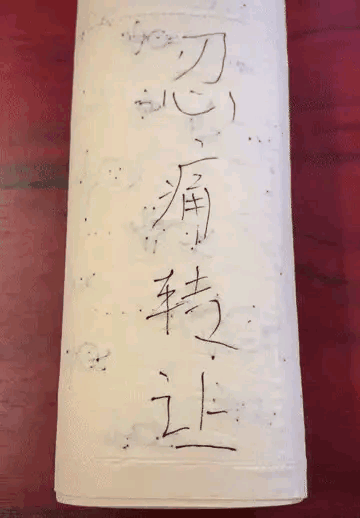 忍痛转让